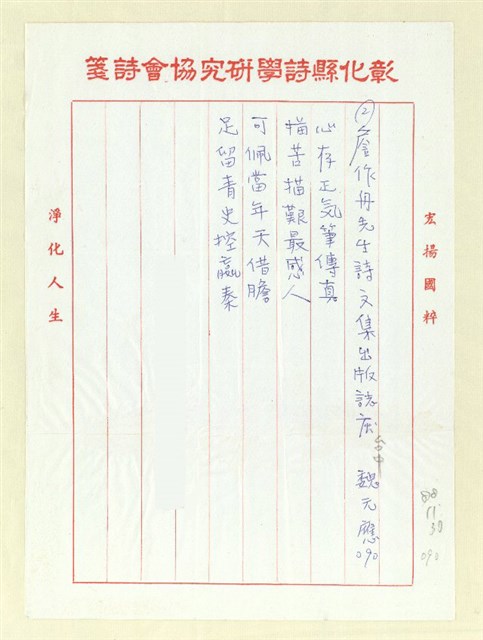 彰化縣詩學研究協會詩箋
宏揚國粹
② 詹作舟先生詩文集出版誌慶 台中 魏元應 090
心存正気筆傳真
描苦描艱最感人
可佩當年天借膽
足留青史控嬴秦
淨化人生
88
11.30
090